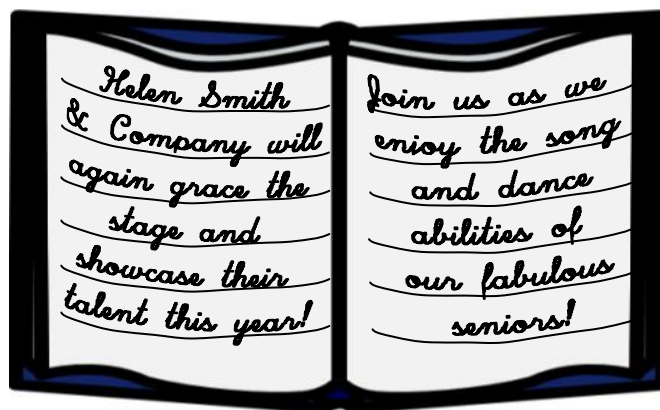 Helen Smith
& Company will
again grace the
stage and
showcase their
talent this year!
Join us as we
enjoy the song
and dance
abilities of
our fabulous
seniors!